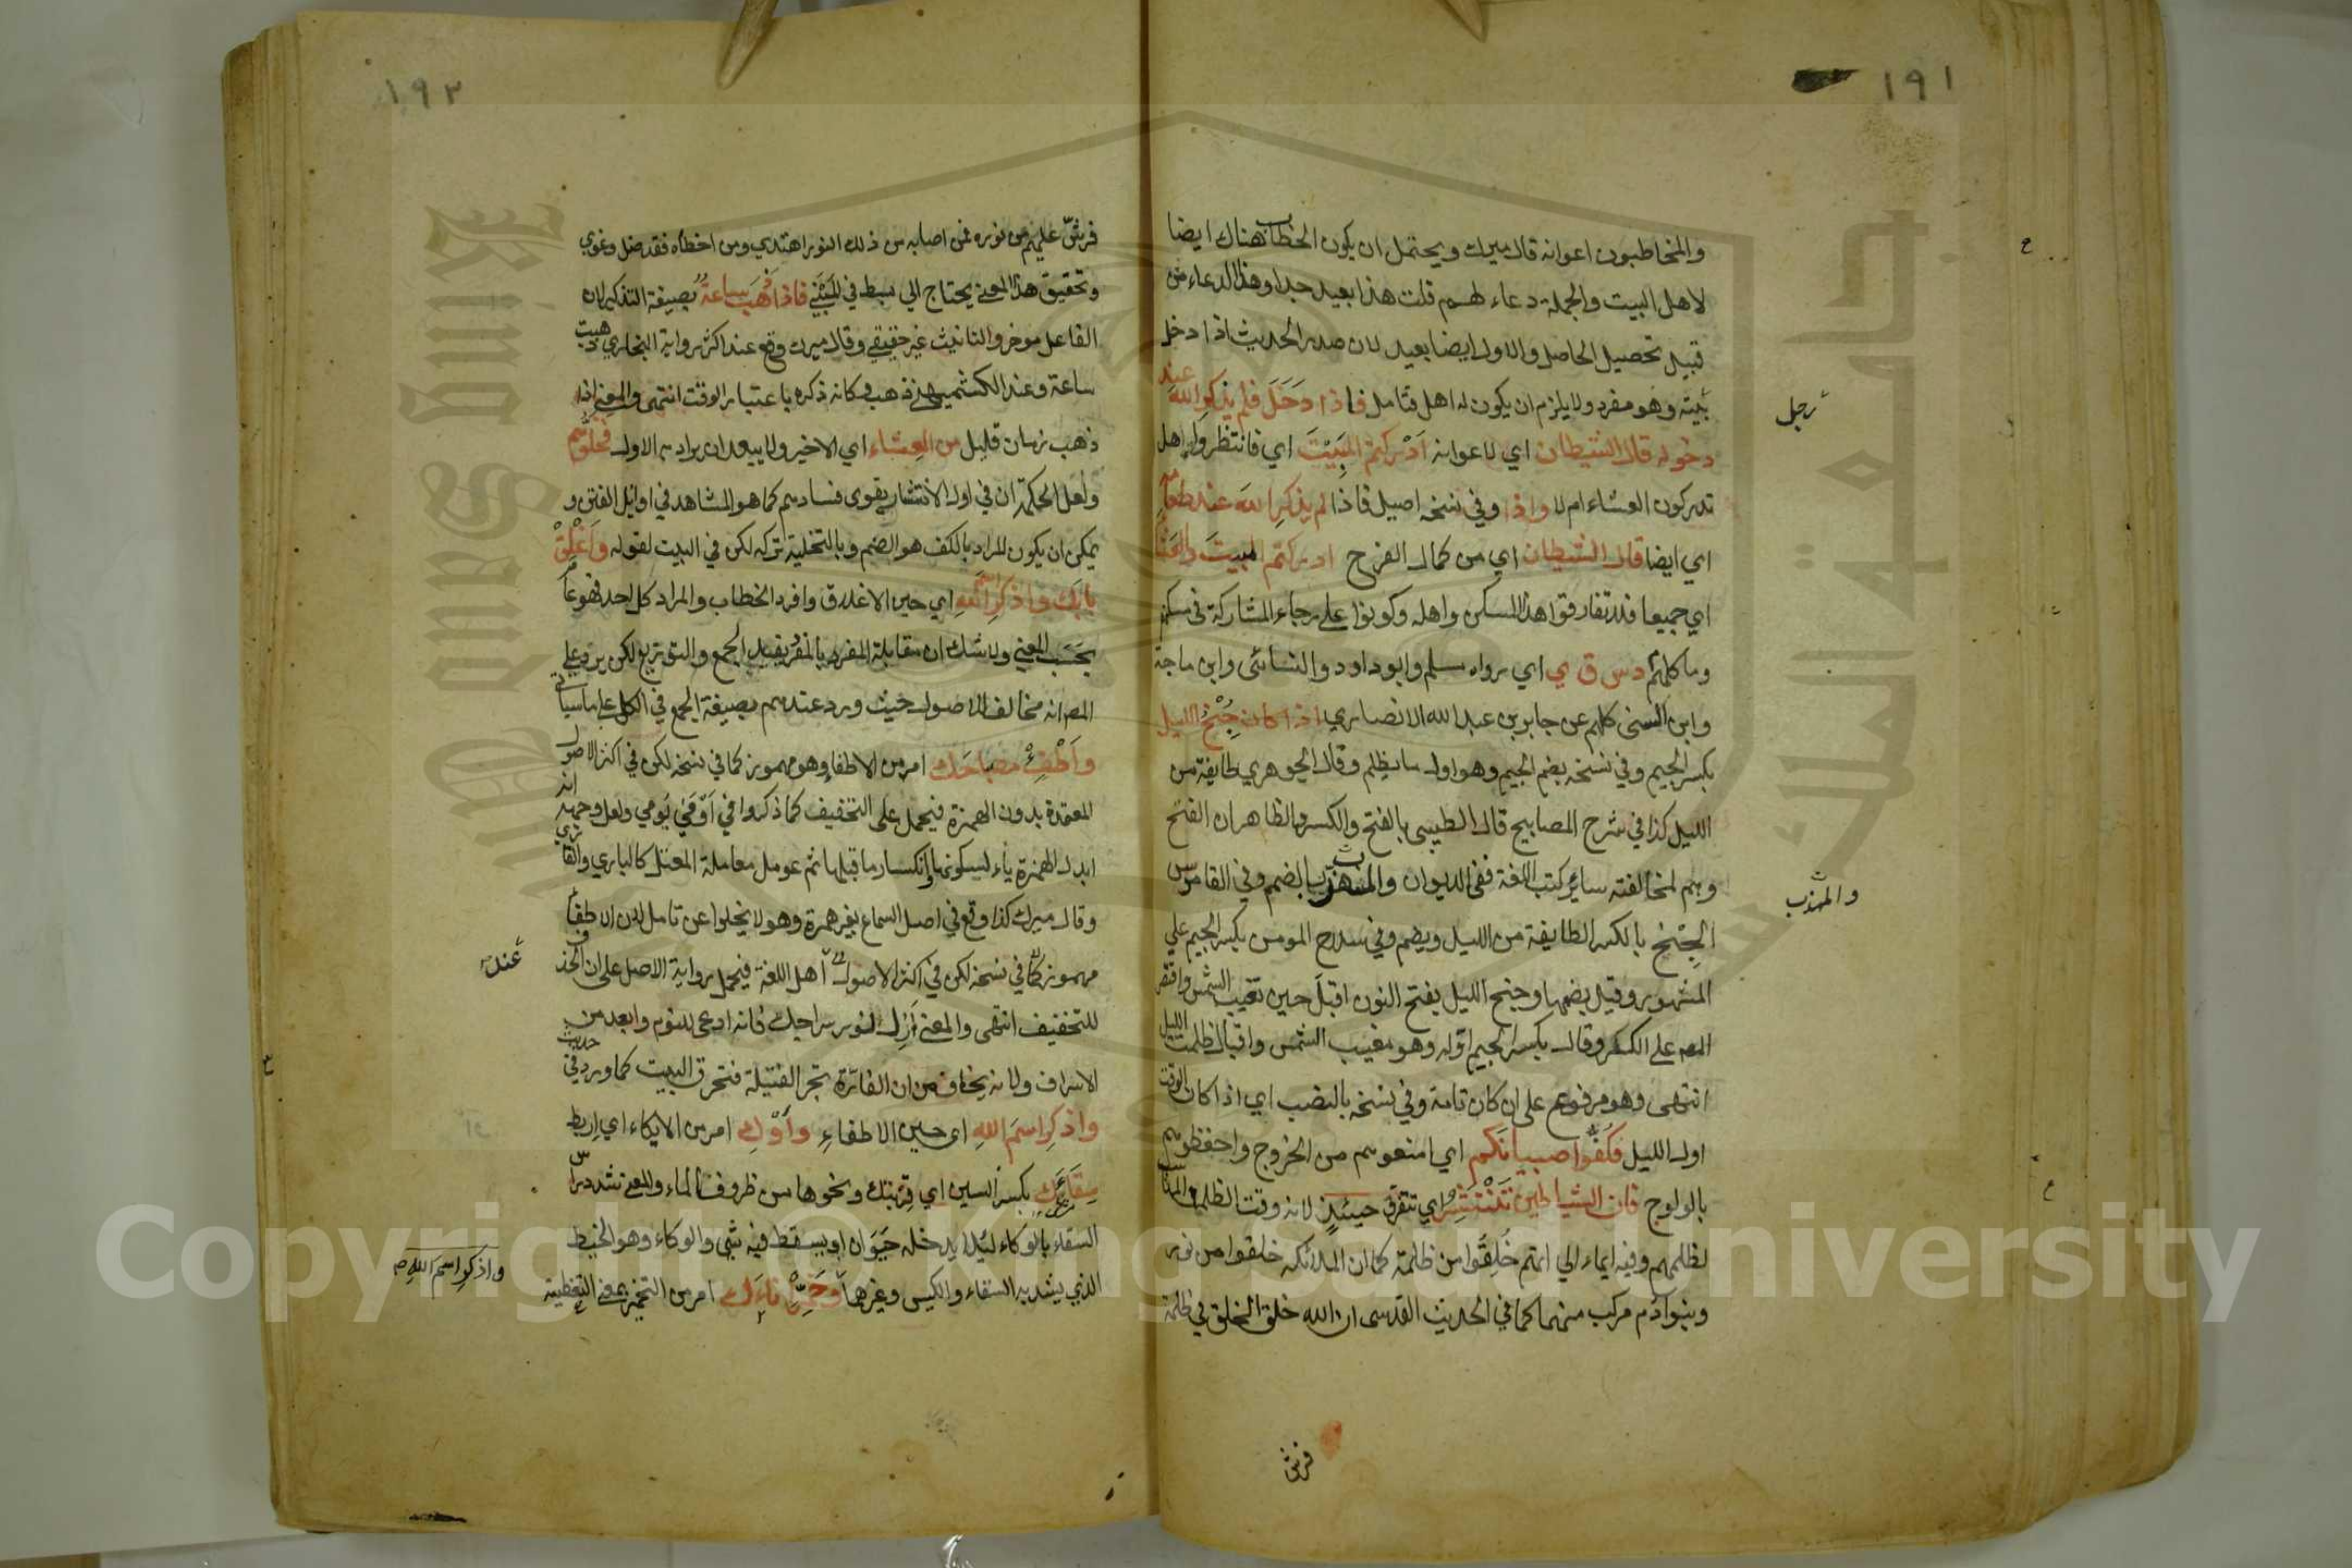 ١٩١
والمخاطبون اعوانه قال ميرك ويحتمل ان يكون الخطاب هناك ايضا
لاهل البيت والجملة دعاء لهم قلت هذا بعيد جدا وهذا الدعاء من
قبيل تحصيل الحاصل والاول ايضا بعيد لان صدر الحديث اذا دخل
رجل
بيته وهو مفرد ولا يلزم ان يكون له اهل فتامل فاذا دَخَلَ فلم يذكرِ اللهَ عند
دخوله قال الشيطان اي لاعوانه اَدْركتم المَبِيْتَ اي فانتظروا اهل
تدركون العشاء ام لا واذا وفي نسخة اصيل فاذا لم يذكرِ اللهَ عند طعامِه
اي ايضا قال الشيطان اي من كمال الفرح ادركتم المبيتَ والعَشَاءَ
اي جميعا فلا تفارقوا هذا المسكن واهله وكونوا على رجاء المشاركة في مسكنهم
وماكلهم م د س ق ي اي رواه مسلم وابو داود والنسائى وابن ماجة
وابن السنى كلهم عن جابر بن عبد الله الانصاري اذا كان جُِنْحُ الليل
بكسر الجيم وفي نسخة بضم الجيم وهو اول ما يظلم وقال الجوهري طايفة من
الليل كذا في شرح المصابيح قال الطيبى بالفتح والكسر والظاهر ان الفتح
وهم لمخالفته ساير كتب اللغة ففى الديوان والمهذب بالضم وفي القاموس
والمهذب
الجِنْح بالكسر الطايفة من الليل ويضم وفي سلاح المومن بكسر الجيم علي
المشهور وقيل بضمها وجنح الليل بفتح النون اقبل حين تغيب الشمس واقتصر
المص على الكسر وقال بكسر الجيم اوّله وهو مغيب الشمس واقبال ظلمة الليل
انتهى وهو مرفوع على ان كان تامة وفي نسخة بالنصب اي اذا كان الوقت
اول الليل فكُفّوا صبيانَكم اي امنعوهم من الخروج واحفظوهم
بالولوج فان الشياطين تَنْتَشِرُ اي تتفرق حينئذٍ لانه وقت الظلمة المناسب
لظلمهم وفيه ايماء الي انهم خُلِقُوا من ظلمة كما ان الملائكة خلقوا من نور
وبنو ادم مركب منهما كما في الحديث القدسى ان الله خلق الخلق في ظلمة
فرش
١٩٢
فرشّ عليهم من نوره فمن اصابه من ذلك النور اهتدي ومن اخطأه فقد ضل وغوي
وتحقيق هذا المعنى يحتاج الي بسط في المَبْنَي فاذا ذهَبَ ساعةٌ بصيغة التذكير لان
الفاعل موخر والتانيث غير حقيقي وقال ميرك وقع عند اكثر رواية البخاري ذهبت
ساعة وعند الكشميهنى ذهب وكانه ذكره باعتبار الوقت انتهى والمعنى اذا
ذهب زمان قليل من العِشاء اي الاخير ولا يبعد ان يراد به الاول فخَلُّوهم
ولعل الحكمة ان في اول الانتشار يقوى فسادهم كما هو المشاهد في اوائل الفتن و
يمكن ان يكون المراد بالكف هو الضم وبالتخلية تركه لكن في البيت لقوله وَاَغْلِقْ
بابَك واذكرِ اسم اللهِ اي حين الاغلاق وافرد الخطاب والمراد كل احد فهو عام
بحَسَب المعنى ولا شك ان مقابلة المفرد بالمفرد يفيد الجمع والتوزيع لكن يرد على
المص انه مخالف الاصول حيث ورد عندهم بصيغة الجمع في الكل على ما سياتي
وَاَطْفِئْ مصباحَك امر من الاطفاء وهو مهموز كما في نسخة لكن في اكثر الاصول
المعتمدة بدون الهمزة فيحمل على التخفيف كما ذكروا في اَوْفَيْ يومي ولعل وجهه انه
ابدل الهمزة ياء لسكونها وانكسار ما قبلها ثم عومل معاملة المعتل كالباري والقاري
وقال ميرك كذا وقع في اصل السماع بغير همزة وهو لا يخلوا عن تامل لان الاطفاء
مهموز كما في نسخة لكن في اكثر الاصول اهل اللغة فيحمل رواية الاصل على ان الحذف
عند
للتخفيف انتهى والمعنى اَزِل نور سراجك فانه ادعى للنوم وابعد من
الاسراف ولانه يخاف من ان الفارة تجر الفتيلة فتحرق البيت كما ورد في حديث
واذكرِ اسمَ اللهِ اى حين الاطفاءِ وأوْكِ امر من الايكاء اي اربط
سِقَاءَكَ بكسر السين اي قِرْبتك ونحوها من ظروف الماء والمعنى شدد راس
السقاء بالوكاء لئلا يدخله حَيَوان او يسقط فيه شئ والوكاء وهو الخيط
الذي يشد به السقاء والكيس وغيرها وخَمِّرْ اناءَك امر من التخمير بمعنى التغطية
واذكرِ اسمَ اللهِ صح
Copyright © King Saud University
King Saud University
جامعة الملك سعود